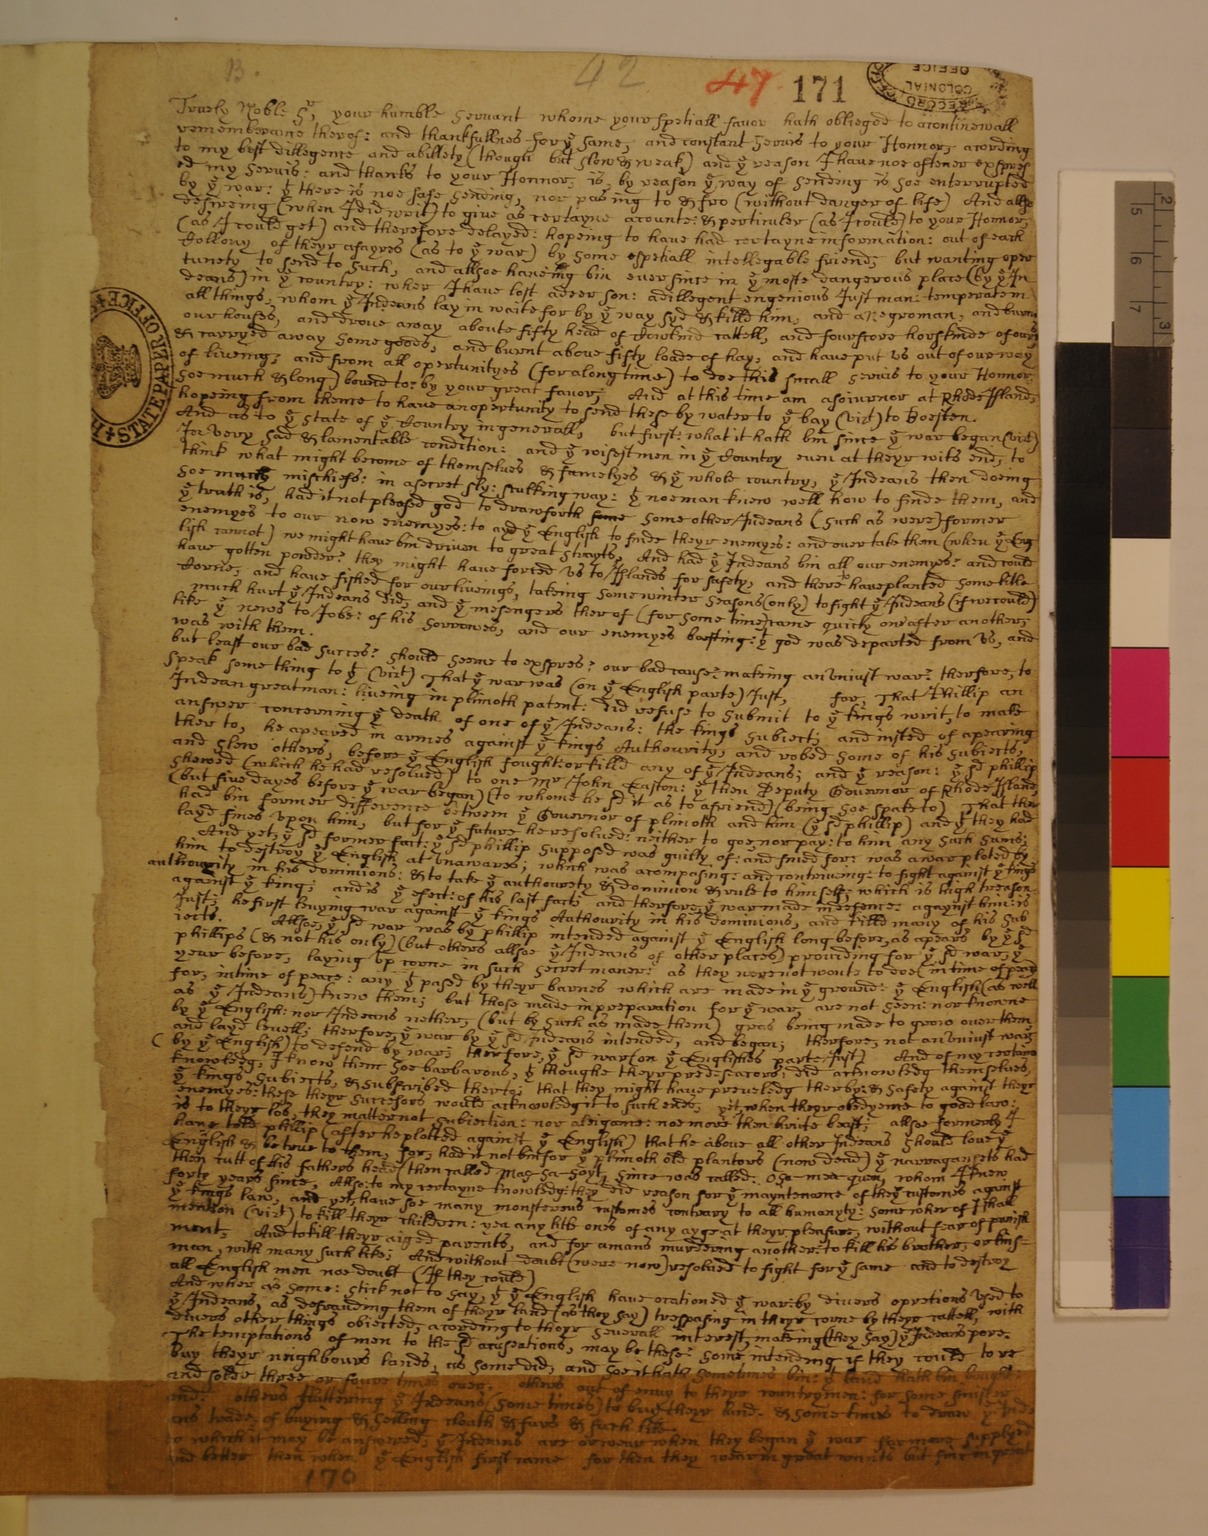 B.
42
47 171
RECORD OFFICE COLONIAL
STATE PAPER OFFICE
Truely Noble Sr, your humble servant whome your spetiall favor hath obliegde to acontinewall
rememberance therof: and thankfullnes for ye same, and constant servis to your Honnor, acording
to my best dillegence and abillety (though but slow & weak) and ye reason I have noe oftener expres
ed my servis: and thanks to your Honnor, is, by reason ye way of sending is soe enterrupted
by ye war: yt there is noe safe sending, nor pasing to & fro (without danger of life) And allso
desireing (when I did writ) to give as certayne acounte: & perticuler (as I could) to your Honnor,
(as I could get) and therefore delayed: hopeing to have had certayne information: out of each
Collony of theyr afayres (as to ye war) by some espetiall intellegable friend; but wanting opor
tunety to send to such, and allsoe haveing bin ever since in ye moste dangerous place (by ye In
deans) in ye country: wher I have lost adeer son: adillegent engenious Just man: temperate in
all things, whom ye Indeans lay in waite for by ye way syd & killd him, and a Negro man, and burnt
our houses, and drove away aboute fifty head of Cowkind cattell, and fourscore horskinde of ours
& carryed away some goods, and burnt above fifty loade of hay, and have put us out of our way
of liveing, and from all opertunityes (for along time) to doe this small servis to your Honnor
soe much & long) bound to: by your great favor, And at this time am asoiurnor at Rhode Island
hopeing from thence to have an opertunity to send these by water to ye bay (vizt) to Boesten.
And as to ye state of ye Country in generall, but first: what it hath bin since ye war began (vizt)
In very sad & lamentable condition: and ye wisest men in ye Country even at theyr wits end, to
think what might become of themselves & famelyes & ye whole country, ye Indeans then doeing
soe much mischiefs: in asecret sly: sculking way: yt noe man knew well how to finde them, and
ye truth is, had it not pleased god to draw forth some other Indeans (such as were) former
enemyes to our now enemyes: to ayd ye English to finde theyr enemyes: and over take them (when ye Eng
lish cannot) we might have bin driven to great strayts, And had ye Indeans bin all our enemyes: and could
have gotten powder: they might have forced us to Islands for safety, and there have planted some litle
Corne, and have fished for our liveings, takeing some winter seasons (only) to fight ye Indeans (if we could)
much hurt ye Indeans did, and ye mesengers ther of (for some time) came quick one after another:
like ye news to Jobe: of his sorrowes, and our enemyes boesting: yt god was departed from us, and
was with them.
but least our bad succes: should seeme to expres: our bad cause: makeing an uniust war: therfore, to
speak some thing to yt (vizt) That ye war was (on ye English parte) Just, for, That Phillip an
Indean great man: liveing in plimoth patent: did refuse to submit to ye kings writ, to make
answer concerning ye death of one of ye Indeans: the kings subiect, and insted of apearing
ther to, he apeared in armes against ye kings Authourity, and robed some of his subiects,
and slew others, before ye English fought: or killd any of ye Indeans; and ye reason: ye sd phillip
shewed (which he had resolved) to one mr John Easton: ye then Deputy Governor of Rhode Island
(but five dayes before ye war began) (to whome he sd it as to a friend) (being soe spake to) That ther
had bin former difference between ye Governor of plimoth and him (ye sd phillip) and yt they had
layd fines upon him, but for ye future he resolued: neither to goe, nor pay: to him any such sums;
And yet, ye sd former fact: ye sd phillip supposed was guilty of: and fined for: was awar ploted by
him to destroy ye English at unawares; which was acompasing: and contriveing: to fight against ye kings
authourity in his dominions: & to take ye authourety & dominion & rule to himself, which is high treason
against ye king; and is ye efect: of his last fact: and therfore, ye war made indefence: agaynst him: is
Just; he first levying war against ye kings Authourity in his dominions, and killd many of his sub
iects. Allsoe, ye sd war was by phillip intended against ye English long before, as apears by ye sd
phillips (& not his only) (but others allsoe ye Indeans of other places) providing for ye sd war, ye
year before, laying up corne in such secret maner: as they were not wonte to doe (in time of peace
for, in time of peace: any yt pased by theyr barnes which are made in ye ground: ye English (as well
as ye Indeans) knew them; but those made in preparation for ye war, are not seen: nor knowne
by ye English: nor Indeans nether, (but by such as made them) gras being made to grow over them
and layd levell; therfore, ye war by ye sd Indeans intended, and began; therfore, not an uniust war
(by ye English) to defend by war; therfore, ye sd war (on ye Englishes parte Just) And of my certaine
knowledg, I know them soe barbarous, yt thoughe theyr predesesors did acknowledg themselves
ye kings subiects, & subscribed therto; that they might have preveledg therby: & safety against theyr
enemyes: these theyr succesors would acknowledg it to such ends; yet, when theyr obedyence to good law:
is to theyr los, they matter not subiection: nor aleigance: noe more then bruite beast; allsoe formerly I
have told phillip (after he ploted against ye English) that he above all other Indeans should love ye
English & be true to them, for, had it not bin for ye plimoth old plantors (now dead) ye narragansets had
then cutt of his fathers head (then called Mas-sa-soyt, since was called: Osa-mea-quen, whom I knew
forty years since, Allso: to my certayne knowledg: they did reason for ye mayntenance of they customes against
ye kings law, and yet, have soe many monsterous customes contrary to all humanyty: some wher of I shall
mention (vizt) to kill theyr children: yea any litle ones of any ayge at theyr pleasure, without fear of punish
ment; And to kill theyr aiged parents, and for amans murdering another: to kill his brother, or kins=
man, with many such like; And without doubt (were now) resolved to fight for ye same and to destroy
all English men noe doubt (If they could)
And wher as some: stick not to say, yt ye English have ocationed ye war: by divers opretions used to
ye Indeans, as defrauding them of theyr land (as they say) trespasing in theyr corne by theyr cattell, with
divers other things obiected, acording to theyr severall interest, makeing (they say) ye Indeans pore.
The temptations of men to the sd acusations, may be these: some intending if they could to re
buy theyr neighbours lands, as some did, and soe it hath sometimes bin: yt land hath bin bought:
and solde three or foure times over. others out of envy to theyr countrymen: for some sinister
end: others flattering ye Indeans (some times) to buy theyr land. & some times to draw ye Inde
ans trade, of buying & selling cloath & furs & such like
to which it may be answered, ye Indeans are or wear when they began ye war far more supplyed
and better then when ye English first came for then they wear in great wants but since in great
170